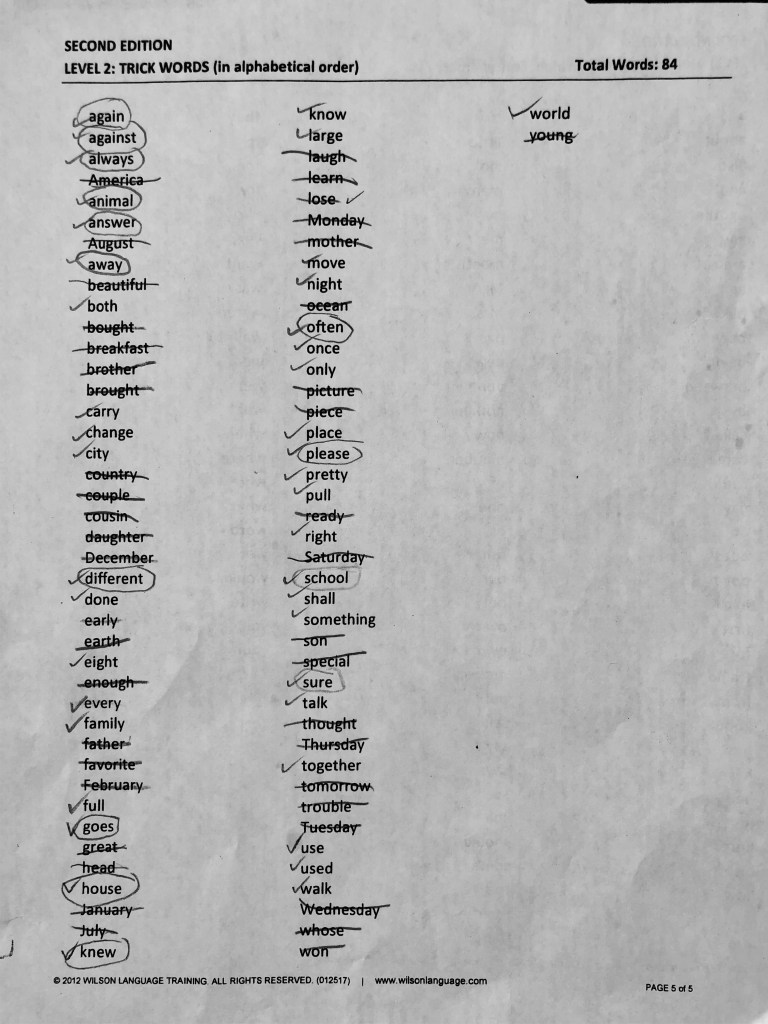 SECOND EDITION
LEVEL 2: TRICK WORDS (in alphabetical order)
Total Words: 84
again
against
always
America
animal
answer
August
away
beautiful
both
bought
breakfast
brother
brought
carry
change
city
country
couple
cousin
daughter
December
different
done
early
earth
eight
enough
every
family
father
favorite
February
full
goes
great
head
house
January
July
knew
know
large
laugh
learn
lose
Monday
mother
move
night
ocean
often
once
only
picture
piece
place
please
pretty
pull
ready
right
Saturday
school
shall
something
son
special
sure
talk
thought
Thursday
together
tomorrow
trouble
Tuesday
use
used
walk
Wednesday
whose
won
world
young
© 2012 WILSON LANGUAGE TRAINING. ALL RIGHTS RESERVED. (012517) | www.wilsonlanguage.com
PAGE 5 of 5